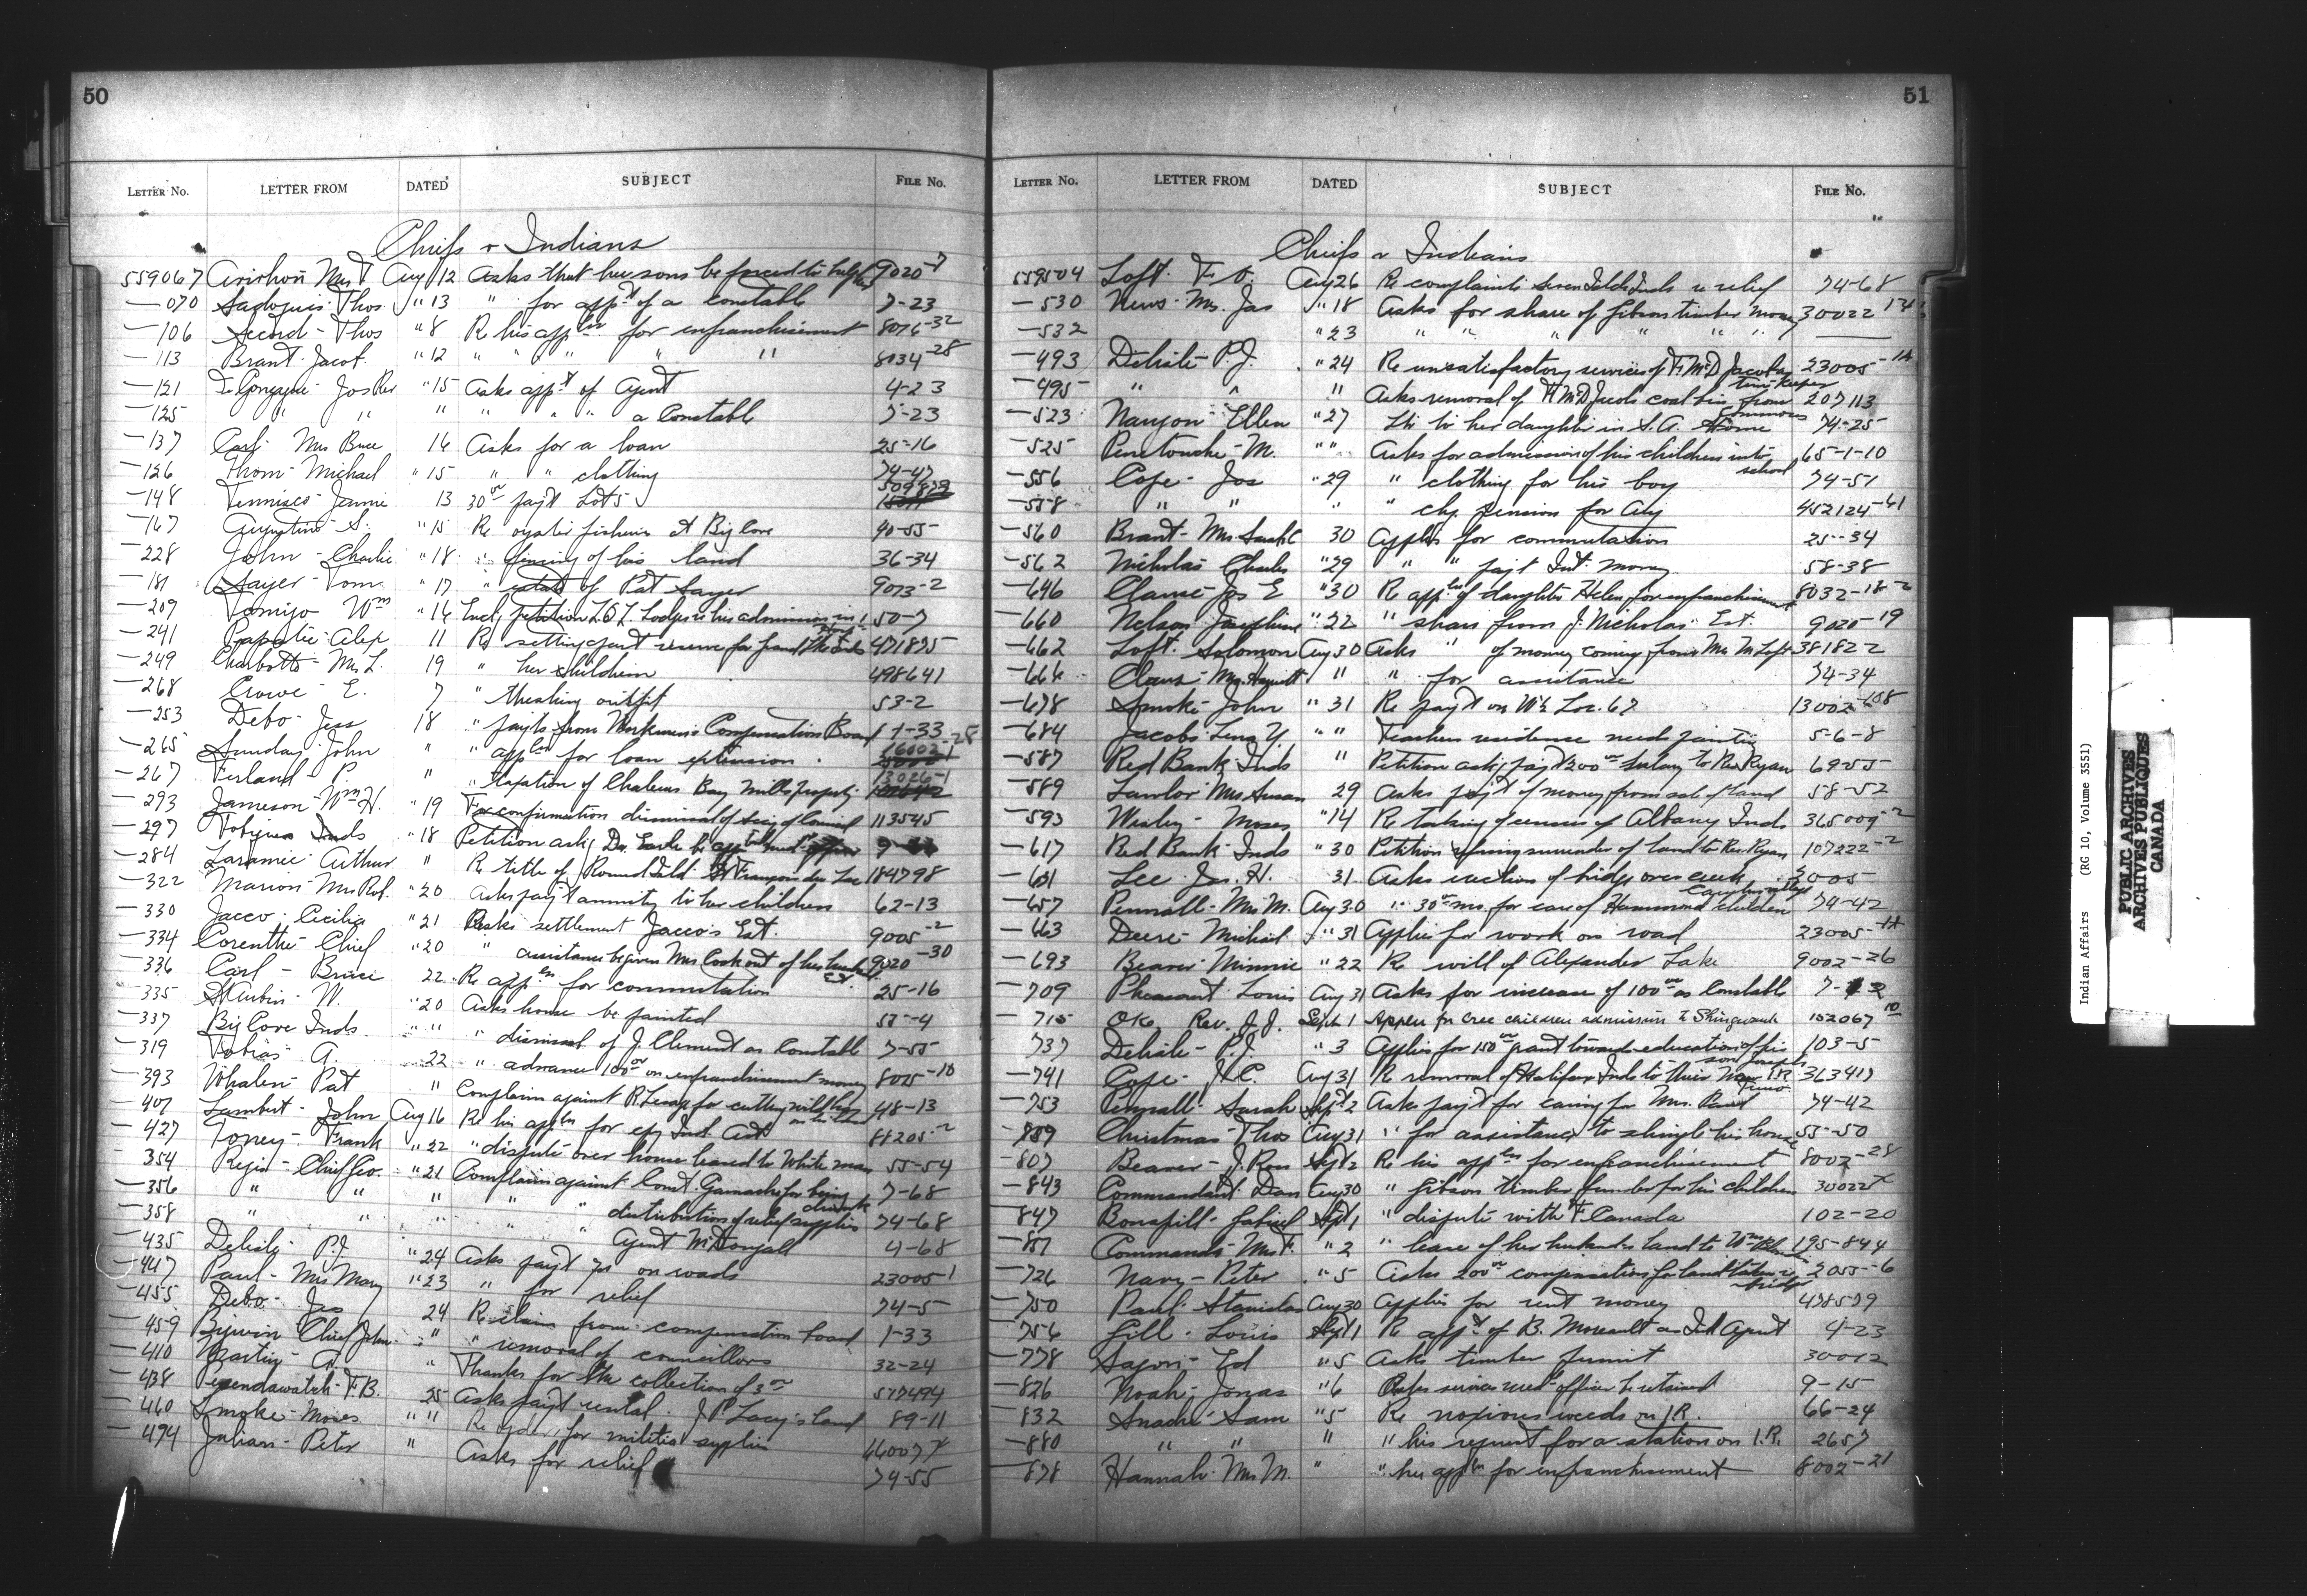 50
LETTER NO. LETTER FROM DATED SUBJECT FILE No.
Chiefs & Indians
559067 Mrs T Aug 12 Asks that her sons be forced to help her 9020-7
—070 Thos "13 " for appt of a constable 7-23
—106 Secord - Thos "8 Re his appln for enfranchisement 8076-32
—113 Brant - Jacob "12 " " " " " 8034-28
—121 Jos Rev "15 Asks appt of Agent 4-23
—125 " " " " " " a Constable 7-23
—137 Carl Mrs Bruce 14 Asks for a loan 25-16
—126 Thom - Michael "15 " " clothing 74-47
—148 Tennisco - Jennie 13 30⁰⁰ payt Lot 5 509829
—167 Augustine - S. "15 Re oyster fisheries at Big Cove 40-55
—228 John - Charlie "18 " fencing of his land 36-34
—181 Sayer - Tom "17 " estate of Pat Sayer 9073-2
—209 Wm "14 Encl petition L.O.L. Lodge re his admission in 50-7
—241 Papatie - Alex 11 Re setting apart reserve for Grand Inds 471875
—249 Charbotte - Mrs L. 19 " her children 498641
—268 Crowe - E. 7 " threshing outfit 53-2
—253 Debo - Jess 18 " payts from Workmen's Compensation Board 1-33
—265 Sunday - John " " appln for loan extension
—267 Ferland P. " " taxation of Chaleurs Bay Mills property 13026-1
—293 Jameson - Wm H. "19 For confirmation dismissal of Secy of Council 113545
—297 Tobique Inds "18 Petition askg Dr. Earle be apptd med. officer
—284 Laramie - Arthur " Re title of Round Isld. François du Lac 184798
—322 Marion - Mrs Rob. "20 Asks payt annuity to her children 62-13
—330 Jacco - Cecilia "21 Asks settlement Jacco's Est. 9005-2
—334 Corenthe - Chief "20 " assistance be given Mrs Cook out of her husband's Est. 9020-30
—336 Carl - Bruce 22 Re appln for commutation 25-16
—335 St Aubin - W. "20 Asks house be painted 57-4
—337 Big Cove Inds. " " " dismissal of J. Clement as Constable 7-55
—319 Tobias - A. 22 " advance 100⁰⁰ on enfranchisement money 8025-10
—393 Whalen - Pat " Complains against R. for cutting wild hay on his land 48-13
—407 Lambert - John Aug 16 Re his appln for cpy Ind. Act 88205-2
—427 Toney - Frank "22 " dispute over house leased to White man 55-54
—354 Regis - Chief Geo. "21 Complains against Const. Gamache for being drunk 7-68
—356 " " " " " distribution of relief supplies 74-68
—358 " " " " " Agent McDougall 4-68
—435 Delisle - P.J. "24 Asks payt on roads 23005-1
—447 Paul - Mrs Mary "23 " for relief 74-5
—455 Debo - Jess 24 Re claim from compensation board 1-33
—459 Chief John " " removal of councillors 32-24
—410 Martin - A. " Thanks for the collection of 3⁰⁰ 517494
—438 Pegendawatch - F.B. 25 Asks payt rental. J.P. Lacy's land 89-11
—460 Smoke - Moses " " Re for militia supplies
—494 Julian - Peter " Asks for relief 74-55
51
LETTER NO. LETTER FROM DATED SUBJECT FILE No.
Chiefs & Indians
559504 Loft. F. O. Aug 26 Re complaints Seven Islds Inds re relief 74-68
—530 News - Mrs. Jas "18 Asks for share of Gibson timber money 30022
—532 "23 " " " " " " ——
—493 Delisle P.J. "24 Re unsatisfactory services of F. McD Jacobs timekeeper 23005-1A
—495 " " " Asks removal of F McD Jacobs coal bin from commons 207113
—523 Nanyon - Ellen "27 to her daughter in S.A. Home 74-25
—525 Penetouche - M. " " Asks for admission of his children into school 65-1-10
—556 Cope - Jos "29 " clothing for his boy 74-51
—558 " " " " chq. pension for Aug 452124-41
—560 Brant - Mrs Sarah C 30 Applies for commutation 25-34
—562 Nicholas - Charles "29 " " payt Int. money 58-38
—646 Claus - Jos E "30 Re appln of daughter Helen for enfranchisement 8032-18-2
—660 Nelson - Josephine "22 " share from J. Nicholas Est. 9020-19
—662 Loft - Solomon Aug 30 Asks " of money coming from Mrs M Loft 381822
—664 Claus - Mrs. " " for assistance 74-34
—678 Smoke - John "31 Re payt on W½ Loc. 67 13002-108
—684 Jacobs - Lena Y. " " Teachers residence needs painting 5-6-8
—587 Red Bank Inds " Petition askg payt 200⁰⁰ salary to Rev Ryan 6955
—589 Lawlor - Mrs Susan 29 Asks payt of money from sale of land 58-52
—593 Wesley - Moses "14 Re taking of census of Albany Inds 365009-2
—617 Red Bank Inds "30 Petition surrender of land to Rev Ryan 107222-2
—631 Lee - Jas. H. 31 Asks erection of bridge over creek 3005
—657 Pennall - Mrs M. Aug 30 " 30⁰⁰ mo. for care of Hammond children 74-42
—663 Deere - Michael "31 Applies for work on road 23005-1A
—693 Beaver - Minnie "22 Re will of Alexander Lake 9002-26
—709 Pheasant - Louis Aug 31 Asks for increase of 100⁰⁰ as Constable
—715 Oke Rev. J.J. Sept 1 Appln for Cree children admission to Shingwauk 152067
737 Delisle - P.J. "3 Applies for 150⁰⁰ grant towards education of his son Joseph 103-5
—741 Cope - J.C. Aug 31 Re removal of Halifax Inds to Truro 363417
—753 Pennall - Sarah Sept 2 Asks payt for caring for Mrs. Paul 74-42
—789 Christmas - Thos Aug 31 " for assistance to shingle his house 55-50
—807 Beaver - J. Ross Sept 2 Re his appln for enfranchisement 8002-28
—843 Commandant - Dan Aug 30 " Gibson timber funds for his children 30022
—847 Bonspill - Gabriel Sept 1 " dispute with F. Canada 102-20
—851 Commands - Mrs F. "2 " lease of her husbands land to Wm 195-844
—726 Navy - Peter "5 Asks 200⁰⁰ compensation for land taken re bridge 2055-6
—750 Paul - Stanislas Aug 30 Applies for rent money 478579
—756 Gill - Louis Sept 1 Re appt of B. Moreault as Ind Agent 4-23
—778 Ed "5 Asks timber permit 30012
—826 Noah - Jonas "6 Asks services med officer be retained 9-15
—832 Snache - Sam "5 Re noxious weeds on I.R. 66-24
—880 " " " " his request for a station on I.R. 2657
—878 Hannah - Mrs M. " " her appln for enfranchisement 8002-21
Indian Affairs (RG 10, Volume 3551)
PUBLIC ARCHIVES
ARCHIVES PUBLIQUES
CANADA